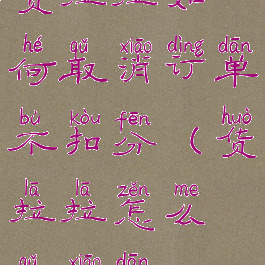 hé qǔ xiāo dìng dān
何取消订单
bù kòu fēn huò
不扣分（货
lā lā zěn me
拉拉怎么